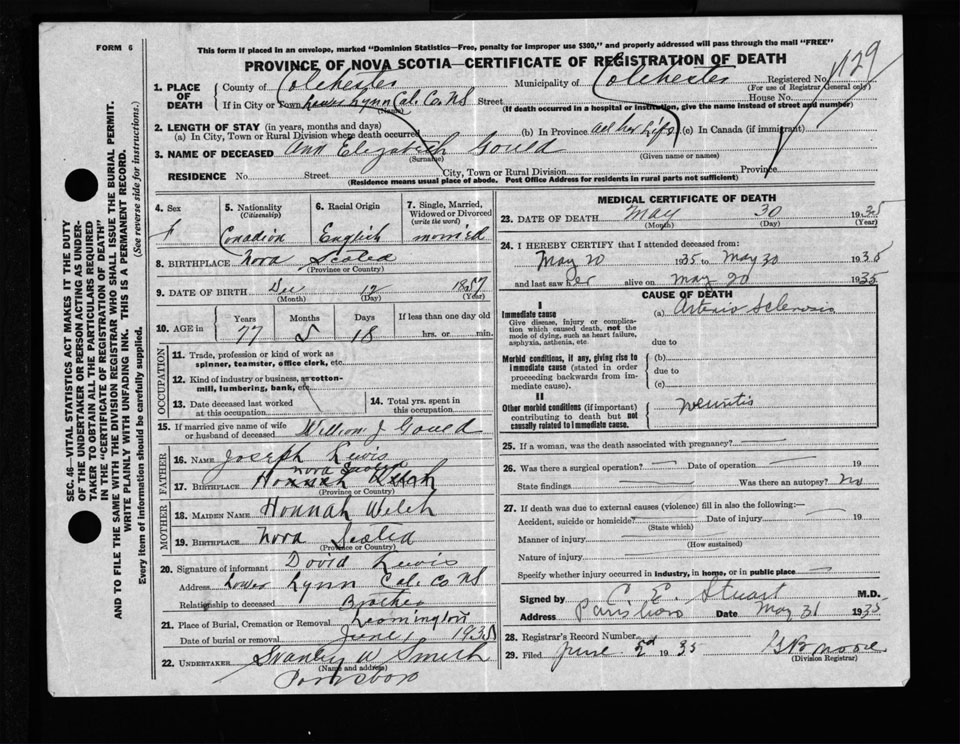 FORM 6
This form if placed in an envelope, marked "Dominion Statistics—Free, penalty for improper use $300," and properly addressed will pass through the mail "FREE"
PROVINCE OF NOVA SCOTIA—CERTIFICATE OF REGISTRATION OF DEATH
1. PLACE OF DEATH
County of Colchester Municipality of Colchester Registered No. 1129
(For use of Registrar General only)
If in City or Town Lower Lynn Col. Co. NS Street House No.
(Name) (If death occurred in a hospital or institution, give the name instead of street and number)
2. LENGTH OF STAY (in years, months and days)
(a) In City, Town or Rural Division where death occurred (b) In Province all her life (c) In Canada (if immigrant)
3. NAME OF DECEASED Ann Elizabeth Gould
(Surname) (Given name or names)
RESIDENCE No. Street City, Town or Rural Division Province
(Residence means usual place of abode. Post Office Address for residents in rural parts not sufficient)
SEC. 46—VITAL STATISTICS ACT MAKES IT THE DUTY
OF THE UNDERTAKER OR PERSON ACTING AS UNDER-
TAKER TO OBTAIN ALL THE PARTICULARS REQUIRED
IN THE "CERTIFICATE OF REGISTRATION OF DEATH"
AND TO FILE THE SAME WITH THE DIVISION REGISTRAR WHO SHALL ISSUE THE BURIAL PERMIT.
WRITE PLAINLY WITH UNFADING INK. THIS IS A PERMANENT RECORD.
Every item of information should be carefully supplied. (See reverse side for instructions.)
4. Sex f
5. Nationality (Citizenship) Canadian
6. Racial Origin English
7. Single, Married, Widowed or Divorced (write the word) married
8. BIRTHPLACE Nova Scotia
(Province or Country)
9. DATE OF BIRTH Dec 12 1857
(Month) (Day) (Year)
10. AGE in Years Months Days If less than one day old
77 5 18 hrs. or min.
OCCUPATION
11. Trade, profession or kind of work as spinner, teamster, office clerk, etc.
12. Kind of industry or business, as cotton-mill, lumbering, bank, etc.
13. Date deceased last worked at this occupation
14. Total yrs. spent in this occupation
15. If married give name of wife or husband of deceased William J Gould
FATHER
16. NAME Joseph Lewis
Nova Scotia
17. BIRTHPLACE Hannah
(Province or Country)
MOTHER
18. MAIDEN NAME Hannah Welch
19. BIRTHPLACE Nova Scotia
(Province or Country)
20. Signature of informant David Lewis
Address Lower Lynn Col. Co NS
Relationship to deceased Brother
21. Place of Burial, Cremation or Removal Leamington
Date of burial or removal June 1 1935
22. UNDERTAKER Stanley W Smith
(Name and address)
Parrsboro
MEDICAL CERTIFICATE OF DEATH
23. DATE OF DEATH May 30 1935
(Month) (Day) (Year)
24. I HEREBY CERTIFY that I attended deceased from:
May 20 1935 to May 30 1935
and last saw her alive on May 20 1935
CAUSE OF DEATH
I
Immediate cause (a) Arterio Sclerosis
Give disease, injury or complication which caused death, not the mode of dying, such as heart failure, asphyxia, asthenia, etc
due to
Morbid conditions, if any, giving rise to immediate cause (stated in order proceeding backwards from immediate cause).
(b)
due to
(c)
II
Other morbid conditions (if important) contributing to death but not causally related to immediate cause.
Neuritis
25. If a woman, was the death associated with pregnancy?
26. Was there a surgical operation? Date of operation 19
State findings Was there an autopsy? no
27. If death was due to external causes (violence) fill in also the following:—
Accident, suicide or homicide? Date of injury 19
(State which)
Manner of injury
(How sustained)
Nature of injury
Specify whether injury occurred in industry, in home, or in public place
Signed by C. E. Stuart M.D.
Address Parrsboro Date May 31 1935
28. Registrar's Record Number
29. Filed June 2d 1935
(Division Registrar)